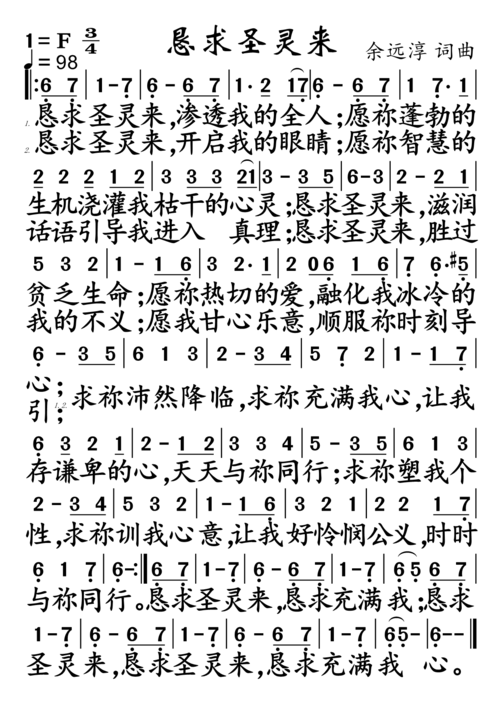 恳求圣灵来
1=F 3/4
余远淳 词曲
♩=98
‖:6 7|1-7|6-6 7|1·2 17|6-6 7|1 7·1|
1.恳求圣灵来,渗透我的全人;愿祢蓬勃的
2.恳求圣灵来,开启我的眼睛;愿祢智慧的
2 2 2 1 2|3 3 3 3 21|3-3 5|6-3|2-2 1|
生机浇灌我枯干的心灵;恳求圣灵来,滋润
话语引导我进入 真理;恳求圣灵来,胜过
5 3 2|1-1 6|3 2·1|2 0 6 1 6|7 6·#5|
贫乏生命;愿祢热切的爱,融化我冰冷的
我的不义;愿我甘心乐意,顺服祢时刻导
6-3 5|6 1 3|2-3 4|5 7 2|1-1 7|
心;
引;
1.2.求祢沛然降临,求祢充满我心,让我
6 3 2 1|2-1 2|3 5 2 3 4|5-3 5|6 1 3|
存谦卑的心,天天与祢同行;求祢塑我个
2-3 4|5 7 2|1-1 6|3 2 1|2 2 1 7|
性,求祢训我心意,让我好怜悯公义,时时
6 1 7|6-:‖6 7|1-7|6-6 7|1-7|6 5 6 7|
与祢同行。恳求圣灵来,恳求充满我;恳求
1-1 7|6-6 7|1-7|6-6 7|1-7|6 5-|6--|6--‖
圣灵来,恳求圣灵来,恳求充满我 心。